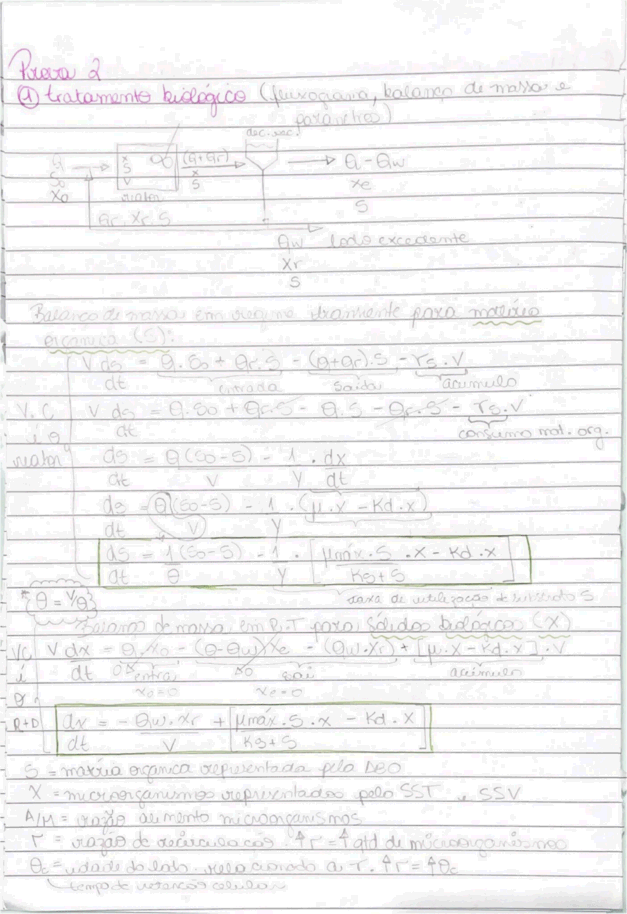 Prova 2
① tratamento biológico (fluxograma, balanço de massa e
parâmetros)
dec. sec.
Q
S₀
X₀
X
S
V
reator
(Q+Qr)
X
S
Q - Qw
Xe
S
Qr. Xr. S
Qw lodo excedente
Xr
S
Balanço de massa em regime transiente para matéria
orgânica (S):
V ds/dt = Q.S₀ + Qr.S - (Q+Qr).S - rs.V
entrada saída acúmulo
V.C
é o
reator
V ds/dt = Q.S₀ + Qr.S - Q.S - Qr.S - rs.V
consumo mat. org.
ds/dt = Q(S₀-S)/V - 1/Y . dx/dt
ds/dt = Q(S₀-S)/V - 1/Y . (μ.X - Kd.X)
ds/dt = 1/θ (S₀-S) - 1/Y . [μmáx.S/Ks+S .X - Kd.X]
taxa de utilização de substrato S
* θ = V/Q
Balanço de massa em R.T para sólidos biológico (X)
VC
é
o
R+D
V dx/dt = Q.X₀ - (Q-Qw)Xe - (Qw.Xr) + [μ.X - Kd.X].V
entra sai acúmulo
X₀=0 Xe=0
dx/dt = - Qw.Xr/V + [μmáx.S.X/Ks+S - Kd.X]
S = matéria orgânica representada pela DBO
X = microorganismos representados pelo SST e SSV
A/M = razão alimento microorganismos
r = razão de recirculação. ↑r = ↑qtd de microorganismos
θc = idade do lodo. relacionado a r. ↑r = ↑θc
tempo de retenção celular